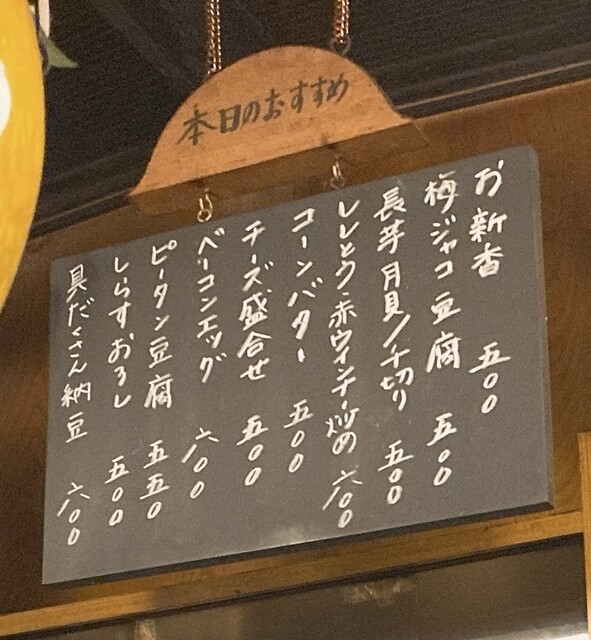 本日のおすすめ
お新香 五〇〇
梅ジャコ豆腐 五〇〇
長芋月見/千切り 五〇〇
ししとう赤ウインナー炒め 六〇〇
コーンバター 五〇〇
チーズ盛合せ 五〇〇
ベーコンエッグ 六〇〇
ピータン豆腐 五五〇
しらすおろし 五〇〇
具だくさん納豆 六〇〇